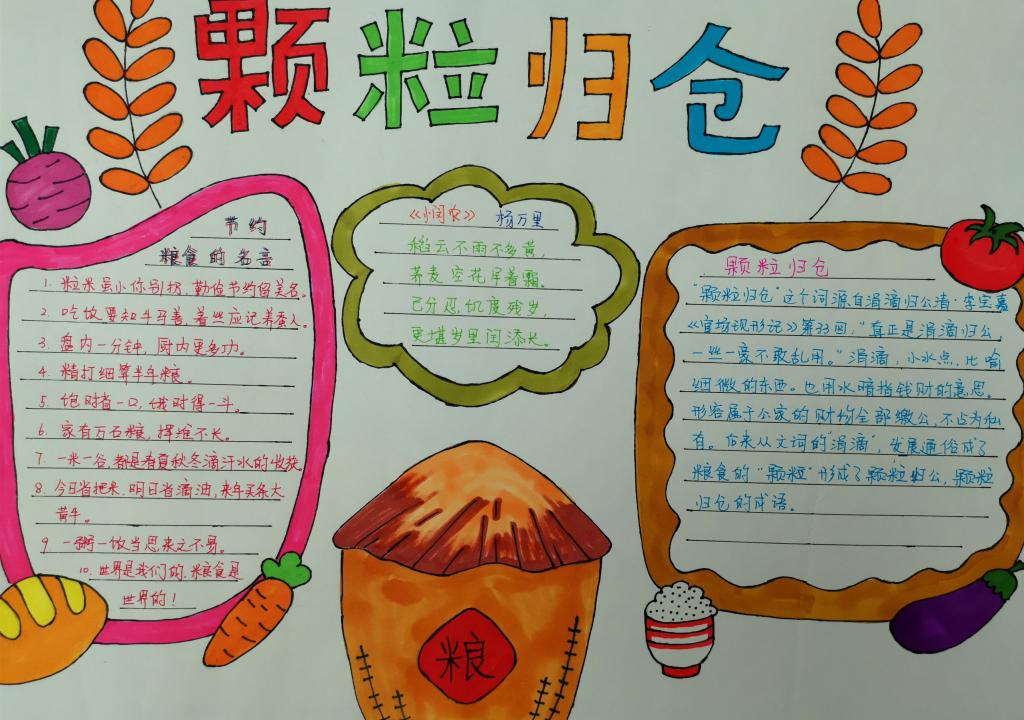 颗粒归仓
节约
粮食的名言
1. 粒米虽小你别扔，勤俭节约留美名。
2. 吃饭要知牛马善，着丝应记养蚕人。
3. 盘内一分钟，厨内更多功。
4. 精打细算半年粮。
5. 饱时省一口，饿时得一斗。
6. 家有万石粮，挥维不长。
7. 一米一谷，都是春夏秋冬滴汗水的收获。
8. 今日省把米，明日省滴油，来年买条大
黄牛。
9 一粥一饭当思来之不易。
10. 世界是我们的，粮食是
世界的！
《悯农》 杨万里
稻云不雨不多黄，
荞麦空花早着霜。
已分忍饥度残岁，
更堪岁里闰添长。
颗粒归仓
“颗粒归仓”这个词源自涓滴归公清·李宝嘉
《官场现形记》第33回，“真正是涓滴归公，
一丝一毫不敢乱用。”涓滴，小水点，比喻
细微的东西。也用水暗指钱财的意思。
形容属于公家的财物全部缴公，不占为私
有。后来从文词的“涓滴”，发展通俗成了
粮食的“颗粒”形成了颗粒归公，颗粒
归仓的成语。
粮